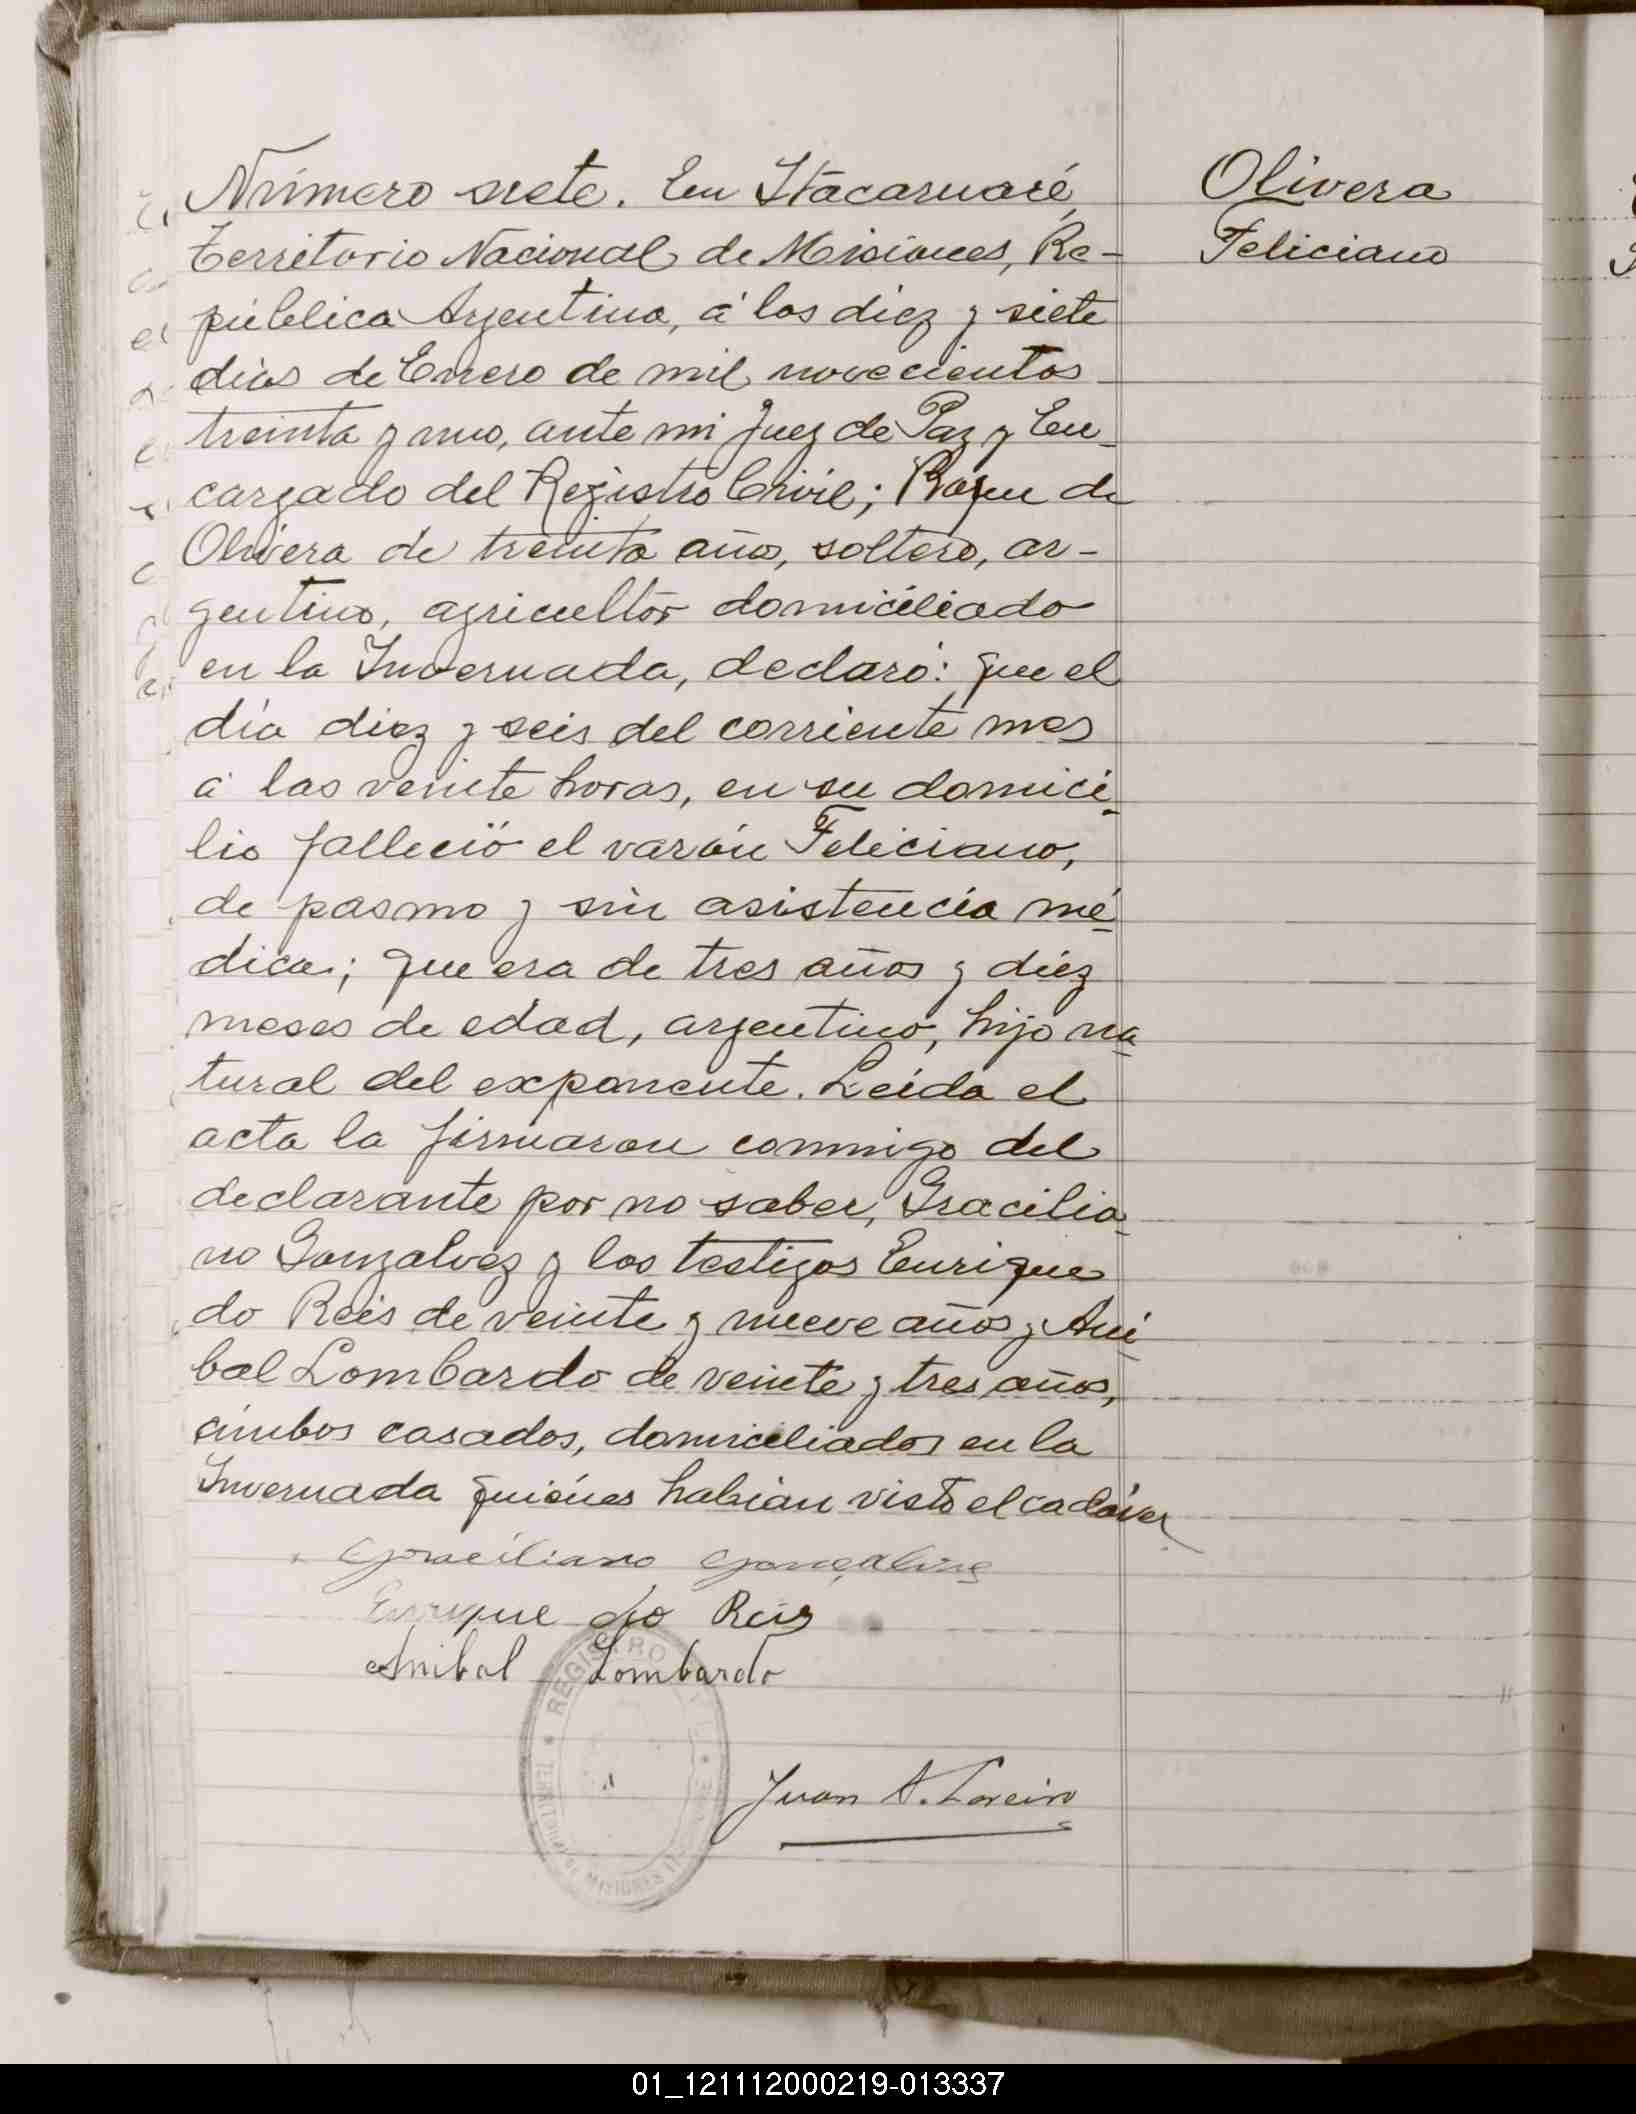 Número siete. En Itacaruaré,
Olivera
Territorio Nacional de Misiones, Re-
Feliciano
pública Argentina, á los diez y siete
días de Enero de mil novecientos
treinta y uno, ante mi Juez de Paz y En-
cargado del Registro Civil; Roque de
Olivera de treinta años, soltero, ar-
gentino, agricultor domiciliado
en la Invernada, declaró: que el
día diez y seis del corriente mes
á las veinte horas, en su domici-
lio falleció el varón Feliciano,
de pasmo y sin asistencia mé-
dica; que era de tres años y diez
meses de edad, argentino, hijo na-
tural del exponente. Leída el
acta la firmaron conmigo del
declarante por no saber, Gracilia-
no Gonzalvez y los testigos Enrique
do Reis de veinte y nueve años y Aní-
bal Lombardo de veinte y tres años,
ámbos casados, domiciliados en la
Invernada quiénes habian visto el cadáver
Graciliano Gonçalves
Enrique do Reis
Anibal Lombardo
REGISTRO CIVIL
TERRITORIO DE MISIONES
Juan A. Loreiro
01_121112000219-013337